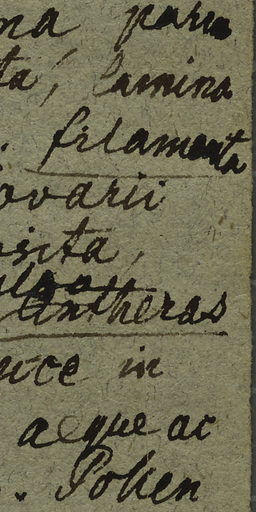 na parva
ta, lamina
. filamenta
ovarii
osita,
antheras
uce in
aeque ac
.. Pollen